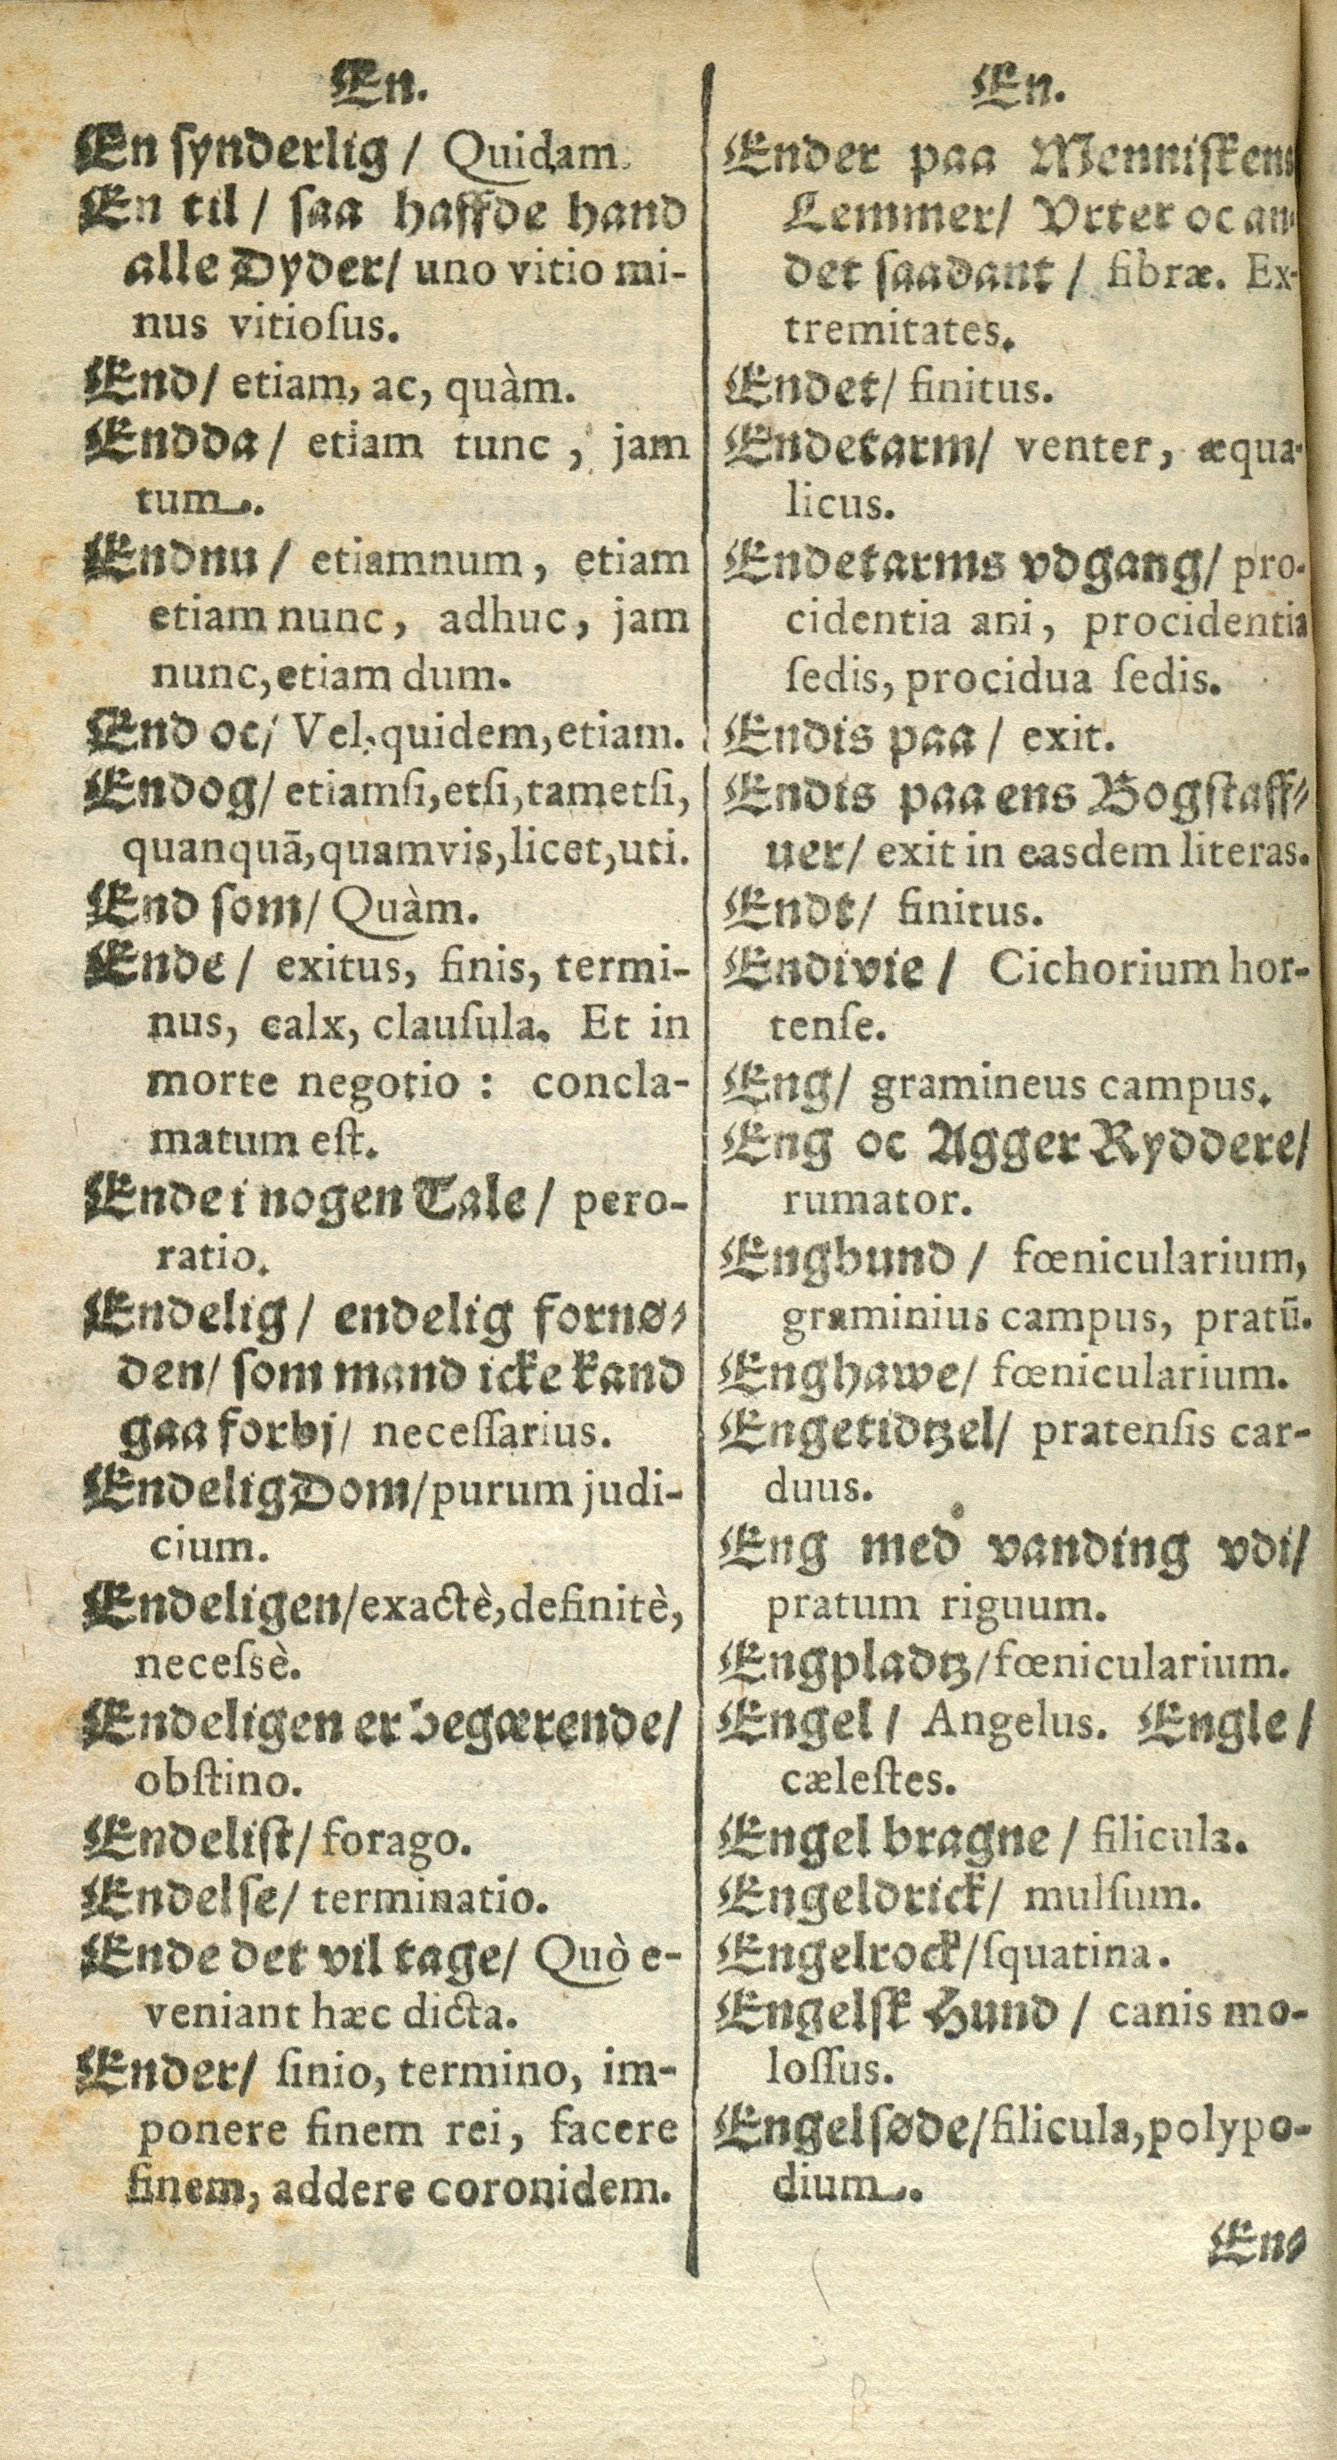 En.
En synderlig / Quidam.
En til / saa haffde hand
alle Dyder / uno vitio mi-
nus vitioſus.
End / etiam, ac, quàm.
Endda / etiam tunc, jam
tum.
Endnu / etiamnum, etiam
etiam nunc, adhuc, jam
nunc, etiam dum.
End oc / Vel, quidem, etiam.
Endog / etiamſi, etſi, tametſi,
quanquā, quamvis, licet, uti.
End ſom / Quàm.
Ende / exitus, finis, termi-
nus, calx, clauſula. Et in
morte negotio : concla-
matum eſt.
Ende i nogen Tale / pero-
ratio.
Endelig / endelig fornø-
den / ſom mand icke kand
gaa forbj / neceſſarius.
Endelig Dom / purum judi-
cium.
Endeligen / exactè, definitè,
neceſsè.
Endeligen er begærende /
obſtino.
Endeliſt / forago.
Endelſe / terminatio.
Ende det vil tage / Quò e-
veniant hæc dicta.
Ender / finio, termino, im-
ponere finem rei, facere
finem, addere coronidem.
En.
Ender paa Menniſkens
Lemmer / Vrter oc an-
det ſaadant / fibræ. Ex-
tremitates.
Endet / finitus.
Endetarm / venter, æqua-
licus.
Endetarms vdgang / pro-
cidentia ani, procidentia
ſedis, procidua ſedis.
Endis paa / exit.
Endis paa ens Bogſtaff-
uer / exit in easdem literas.
Endt / finitus.
Endivie / Cichorium hor-
tenſe.
Eng / gramineus campus.
Eng oc Agger Ryddere /
rumator.
Engbund / fœnicularium,
graminius campus, pratū.
Enghawe / fœnicularium.
Engetidtzel / pratenſis car-
duus.
Eng med vanding vdi /
pratum riguum.
Engpladtz / fœnicularium.
Engel / Angelus. Engle /
cæleſtes.
Engel bragne / filicula.
Engeldrick / mulſum.
Engelrock / ſquatina.
Engelſk Hund / canis mo-
loſſus.
Engelſøde / filicula, polypo-
dium.
En-